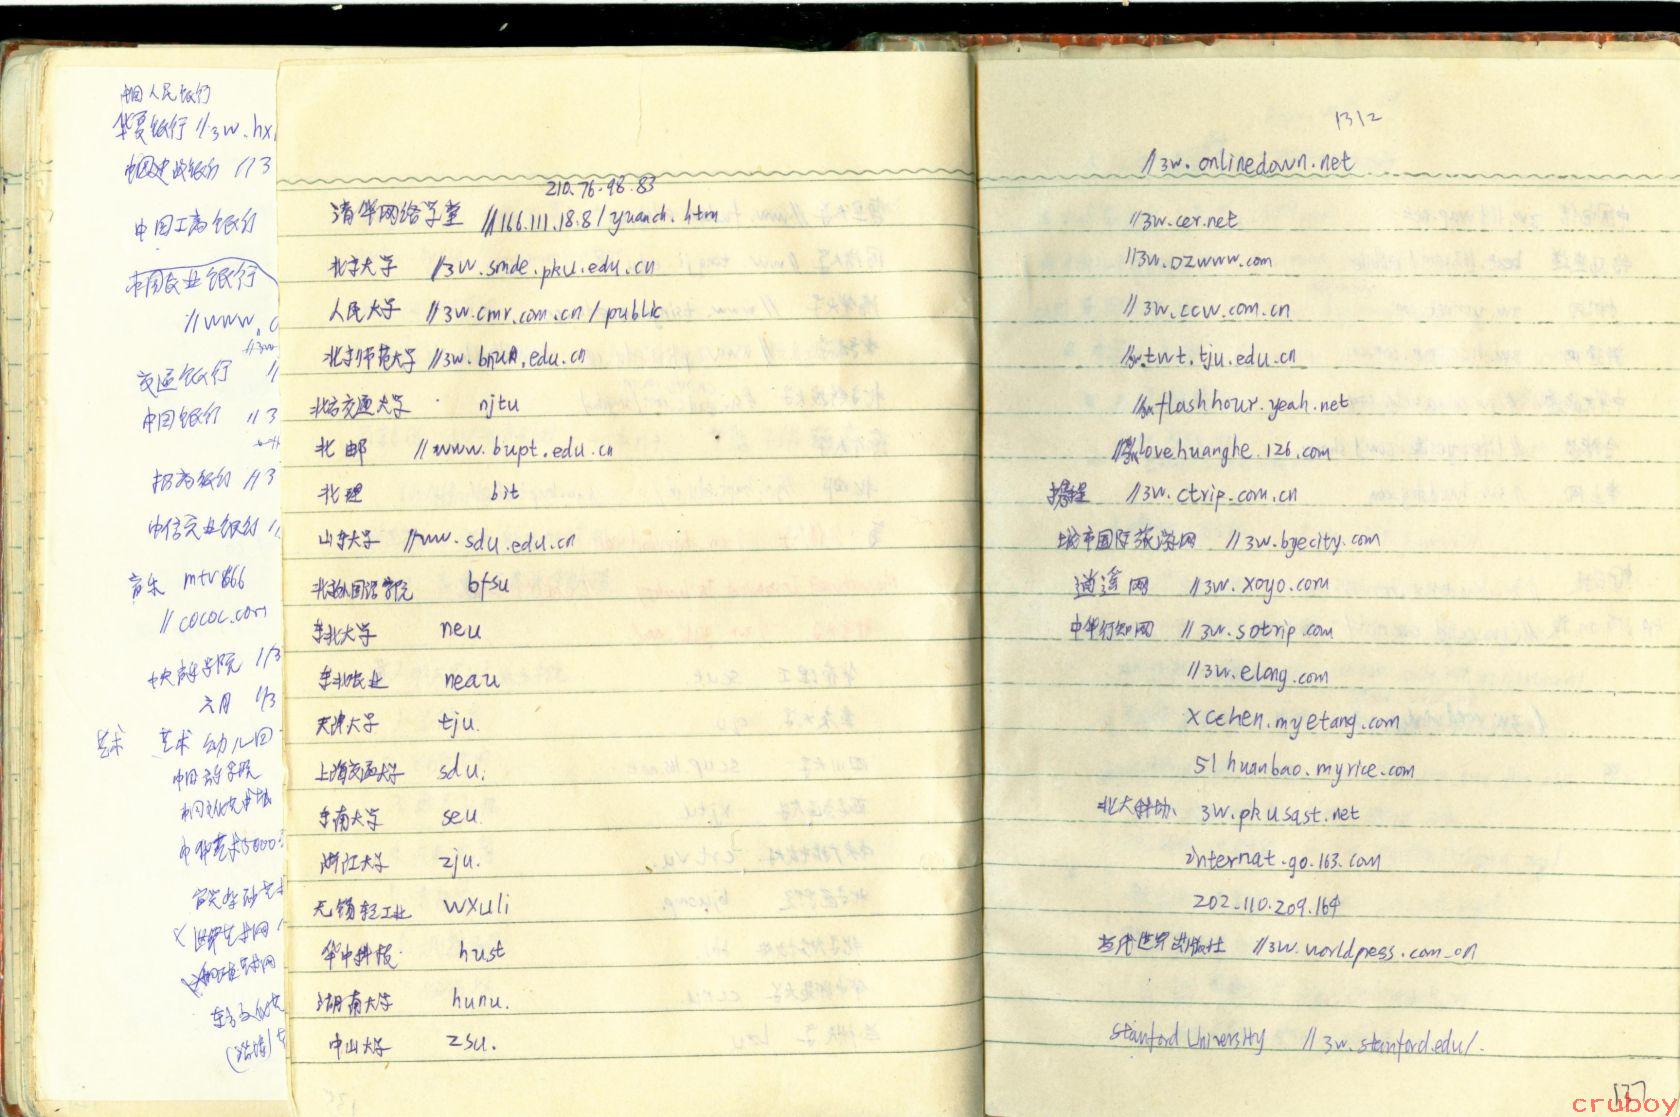 中国人民银行
华夏银行 //3w.hx
中国建设银行 //3
中国工商银行
中国农业银行
//www.c
交通银行 //
中国银行 //3
招商银行 //3
中信实业银行 //
音乐 mtv866
//cococ.com
中央音乐学院 //3
六月 //3
艺术 艺术幼儿园
中国音乐学院
210.76.98.83
清华网络学堂 //166.111.18.8/yuanch.htm
北京大学 //3w.smde.pku.edu.cn
人民大学 //3w.cmr.com.cn/public
北京师范大学 //3w.bnu.edu.cn
北方交通大学 njtu
北邮 //www.bupt.edu.cn
北理 bit
山东大学 //www.sdu.edu.cn
北京外国语学院 bfsu
东北大学 neu
东北农业 neau
天津大学 tju.
上海交通大学 sdu.
东南大学 seu.
浙江大学 zju.
无锡轻工业 wxuli
华中科技 hust
湖南大学 hunu.
中山大学 zsu.
1312
//3w.onlinedown.net
//3w.cer.net
//3w.ozwww.com
//3w.ccw.com.cn
twt.tju.edu.cn
flashhour.yeah.net
lovehuanghe.126.com
携程 //3w.ctrip.com.cn
城市国际旅游网 //3w.byecity.com
逍遥网 //3w.xoyo.com
中华行知网 //3w.sotrip.com
//3w.elong.com
xcchen.myetang.com
51huanbao.myrice.com
北大科协 3w.pkusast.net
internat.go.163.com
202.110.209.164
当代世界出版社 //3w.worldpress.com.cn
Stanford University //3w.stanford.edu/.
137
cruboy